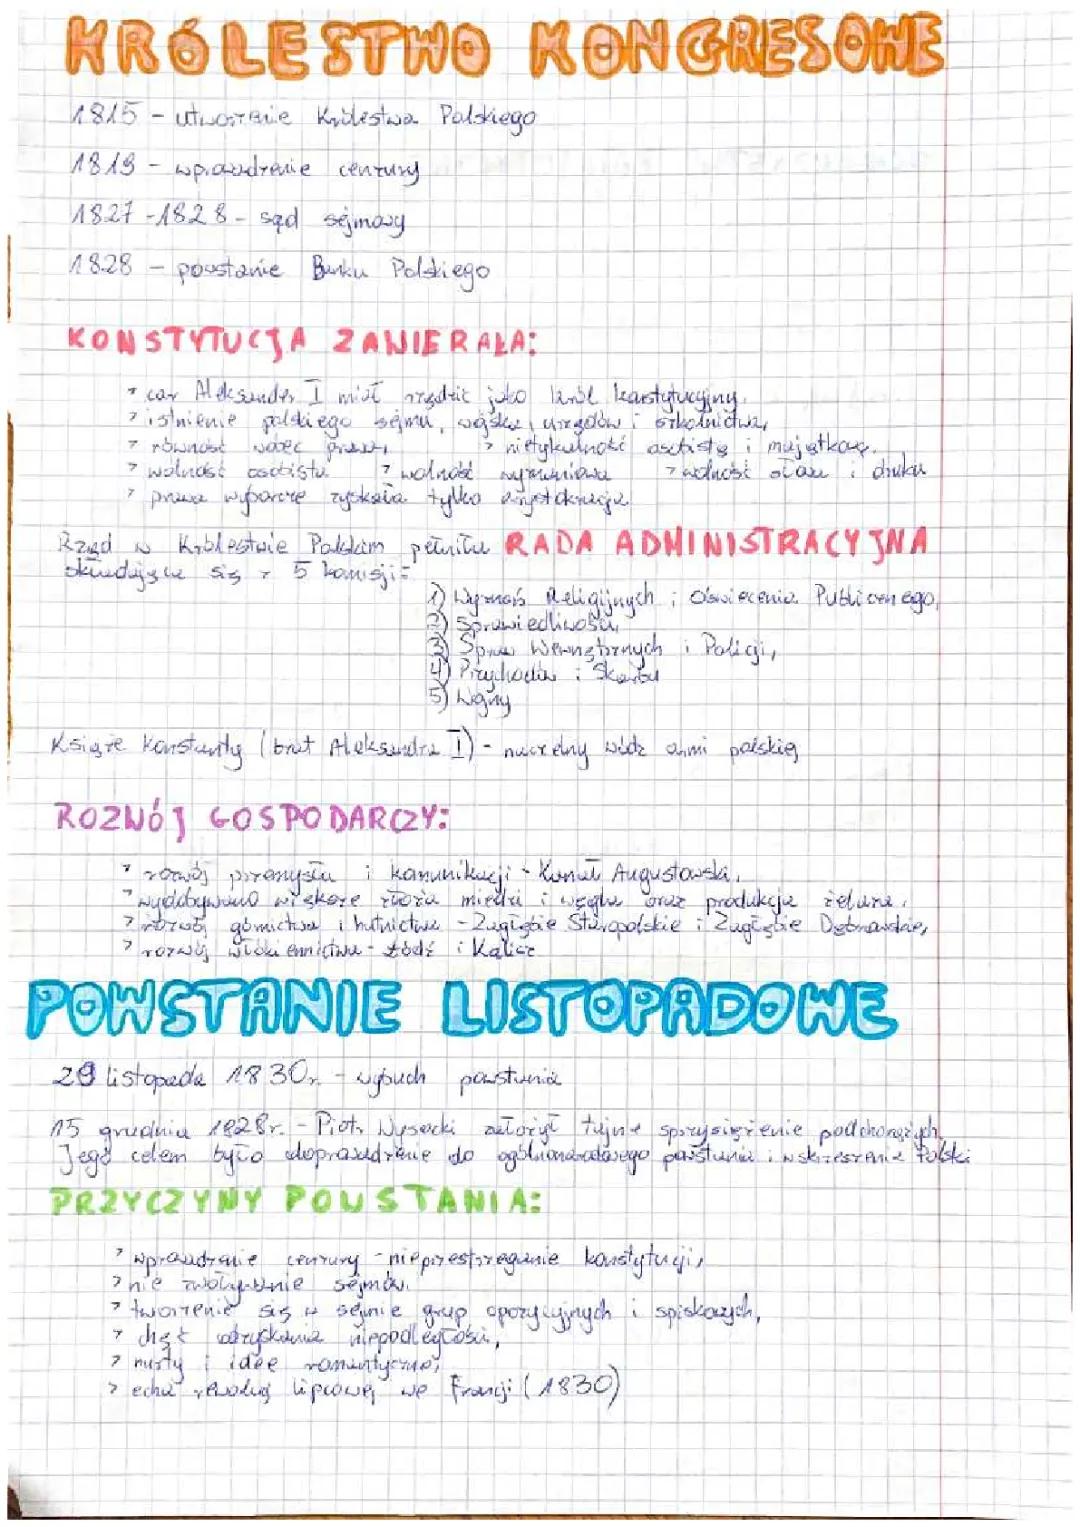 KRÓLESTWO KONGRESOWE
1815 - utworzenie Królestwa Polskiego
1819 - wprowadzenie cenzury
1827-1828 - sąd sejmowy
1828 - powstanie Banku Polskiego
KONSTYTUCJA ZAWIERAŁA:
> car Aleksander I miał rządzić jako król konstytucyjny,
> istnienie polskiego sejmu, wojska, urzędów i szkolnictwa,
> równość wobec prawa, > nietykalność osobistą i majątkową,
> wolność osobista > wolność wyznaniowa > wolność słowa i druku
> prawa wyborcze zyskała tylko arystokracja
Rząd w Królestwie Polskim pełniła RADA ADMINISTRACYJNA
składająca się z 5 komisji:
1) Wyznań Religijnych i Oświecenia Publicznego,
2) Sprawiedliwości,
3) Spraw Wewnętrznych i Policji,
4) Przychodów i Skarbu
5) Wojny
Książe Konstanty (brat Aleksandra I) - naczelny wódz armi polskiej
ROZWÓJ GOSPODARCZY:
> rozwój przemysłu i komunikacji - Kanał Augustowski,
> wydobywano większe złoża miedzi i węgla oraz produkcja żelaza,
> rozwój górnictwa i hutnictwa - Zagłębie Staropolskie i Zagłębie Dąbrowskie,
> rozwój włókiennictwa - Łódź i Kalisz
POWSTANIE LISTOPADOWE
29 listopada 1830r. - wybuch powstania
15 grudnia 1828r. - Piotr Wysocki założył tajne sprzysiężenie podchorążych.
Jego celem było doprowadzenie do ogólnonarodowego powstania i wskrzeszenie Polski
PRZYCZYNY POWSTANIA:
> wprowadzenie cenzury - nieprzestrzeganie konstytucji,
> nie zwoływanie sejmów,
> tworzenie się w sejmie grup opozycyjnych i spiskowych,
> chęć odzyskania niepodległości,
> i idee romantyczne,
> echa rewolucji lipcowej we Francji (1830)